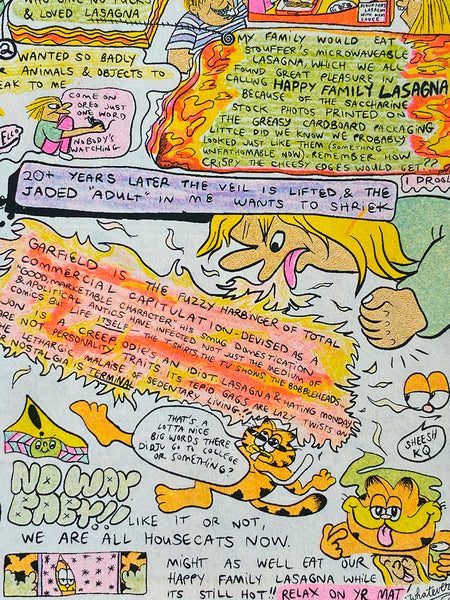 & LOVED LASAGNA
STOUFFER'S
LASAGNA
2
WANTED SO BADLY
ANIMALS & OBJECTS TO
EAK TO ME
COME ON
OREO JUST
ONE WORD
NOBODY'S
WATCHING
MY FAMILY WOULD EAT
STOUFFER'S MICROWAVEABLE
LASAGNA, WHICH WE ALL
FOUND GREAT PLEASURE IN
CALLING HAPPY FAMILY LASAGNA
BECAUSE OF THE SACCHARINE
STOCK PHOTOS PRINTED ON
THE GREASY CARDBOARD PACKAGING
LITTLE DID WE KNOW WE PROBABLY
LOOKED JUST LIKE THEM (SOMETHING
UNFATHOMABLE NOW). REMEMBER HOW
CRISPY THE CHEESY EDGES WOULD GET??
I DROOL
20+ YEARS LATER THE VEIL IS LIFTED, & THE
JADED "ADULT" IN ME WANTS TO SHRIEK
GARFIELD IS THE FUZZY HARBINGER OF TOTAL
COMMERCIAL CAPITULATION - DEVISED AS A
"GOOD, MARKETABLE CHARACTER," HIS SMUG DOMESTICATION
& APOLITICAL ANTICS HAVE INFECTED NOT JUST THE MEDIUM OF
COMICS BUT LIFE ITSELF - THE T-SHIRTS THE TV SHOWS THE BOBBLEHEADS
JON IS A CREEP ODIE'S AN IDIOT LASAGNA & HATING MONDAYS
ARE NOT PERSONALITY TRAITS ITS TEPID GAGS ARE LAZY TWISTS ON
THE LETHARGIC MALAISE OF SEDENTARY LIVING!!
R NOSTALGIA IS TERMINAL
THAT'S A
LOTTA NICE
BIG WORDS THERE
DIDJU GO TO COLLEGE
OR SOMETHING?
SHEESH
KQ
NO WAY
BABY!!
LIKE IT OR NOT,
WE ARE ALL HOUSECATS NOW.
MIGHT AS WELL EAT OUR
HAPPY FAMILY LASAGNA WHILE
ITS STILL HOT!! RELAX ON YR MAT
whatever